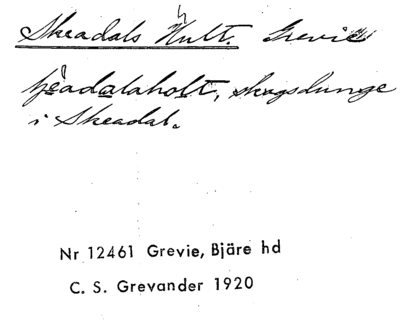 Skeadals Hult. Grevie
sjeadalaholt, skogsdunge
i Skeadal.
Nr 12461 Grevie, Bjäre hd
C. S. Grevander 1920